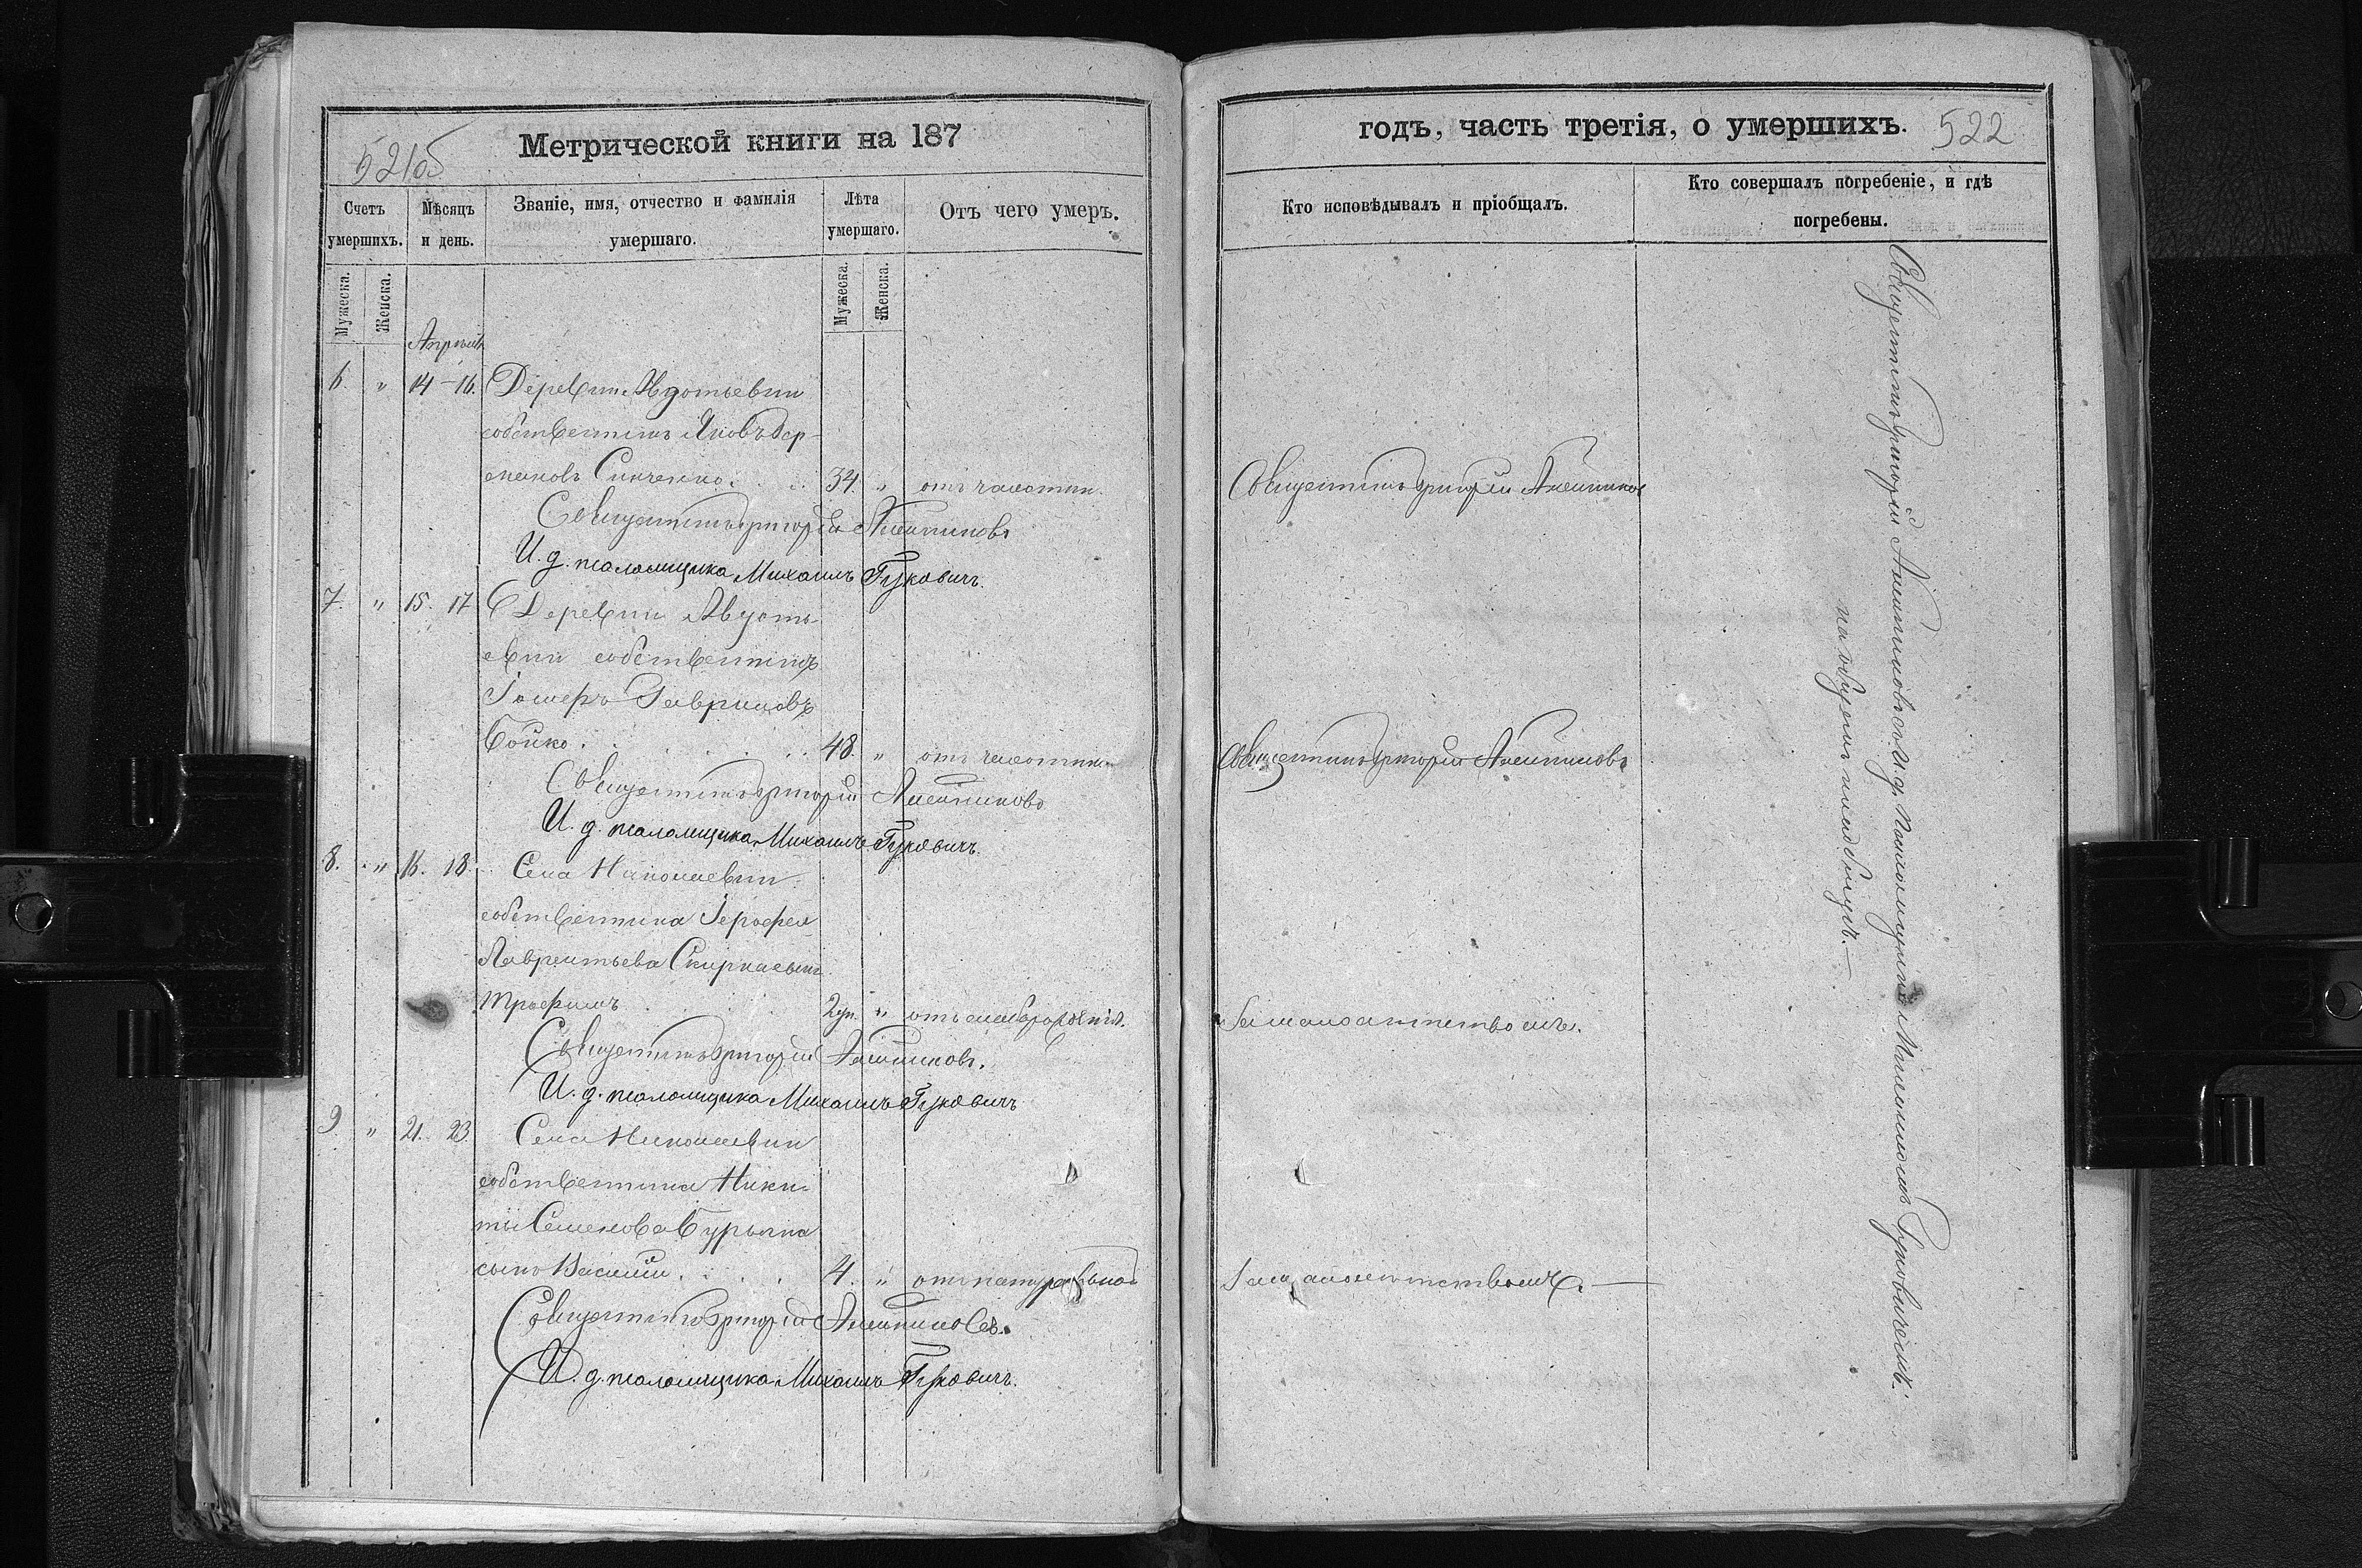 Метрической книги на 187
521об
Счетъ умершихъ.
Мѣсяцъ и день.
Званіе, имя, отчество и фамилія умершаго.
Лѣта умершаго.
Отъ чего умеръ.
Мужеска.
Женска.
Мужеска.
Женска.
Апрѣль
6. " 14-16. Деревни Авдотьевки
собственникъ Яковъ Гер-
мановъ Синченко. 34. " отъ чахотки.
Священникъ Григорій
И. д. псаломщика Михаилъ Гукович.
7. " 15. 17 Деревни Авдоть-
евки собственникъ
Гавриловъ
Бойко. 48. " отъ чахотки
Священникъ Григорій
И. д. псаломщика Михаилъ Гуковичъ.
8. " 16. 18. Села Николаевки
собственника Іерофея
Лаврентьева сынъ
Трофимъ 2 дн. " отъ слаборожденія.
Священникъ Григорій
И. д. псаломщика Михаилъ Гуковичъ
9 " 21. 23. Села Николаевки
собственника Ники-
ты Семенова Бурьяна
сынъ Василій. 4. " отъ натуральной
Священникъ Григорій
И. д. псаломщика Михаилъ Гуковичъ.
годъ, часть третія, о умершихъ.
522
Кто исповѣдывалъ и пріобщалъ.
Кто совершалъ погребеніе, и гдѣ погребены.
Священникъ Григорій
Священникъ Григорій
За малолѣтствомъ.
За малолѣтствомъ. —
Священникъ Григорій съ И. д. Псаломщика Михаиломъ Гуковичемъ.
на общемъ кладбищѣ. —